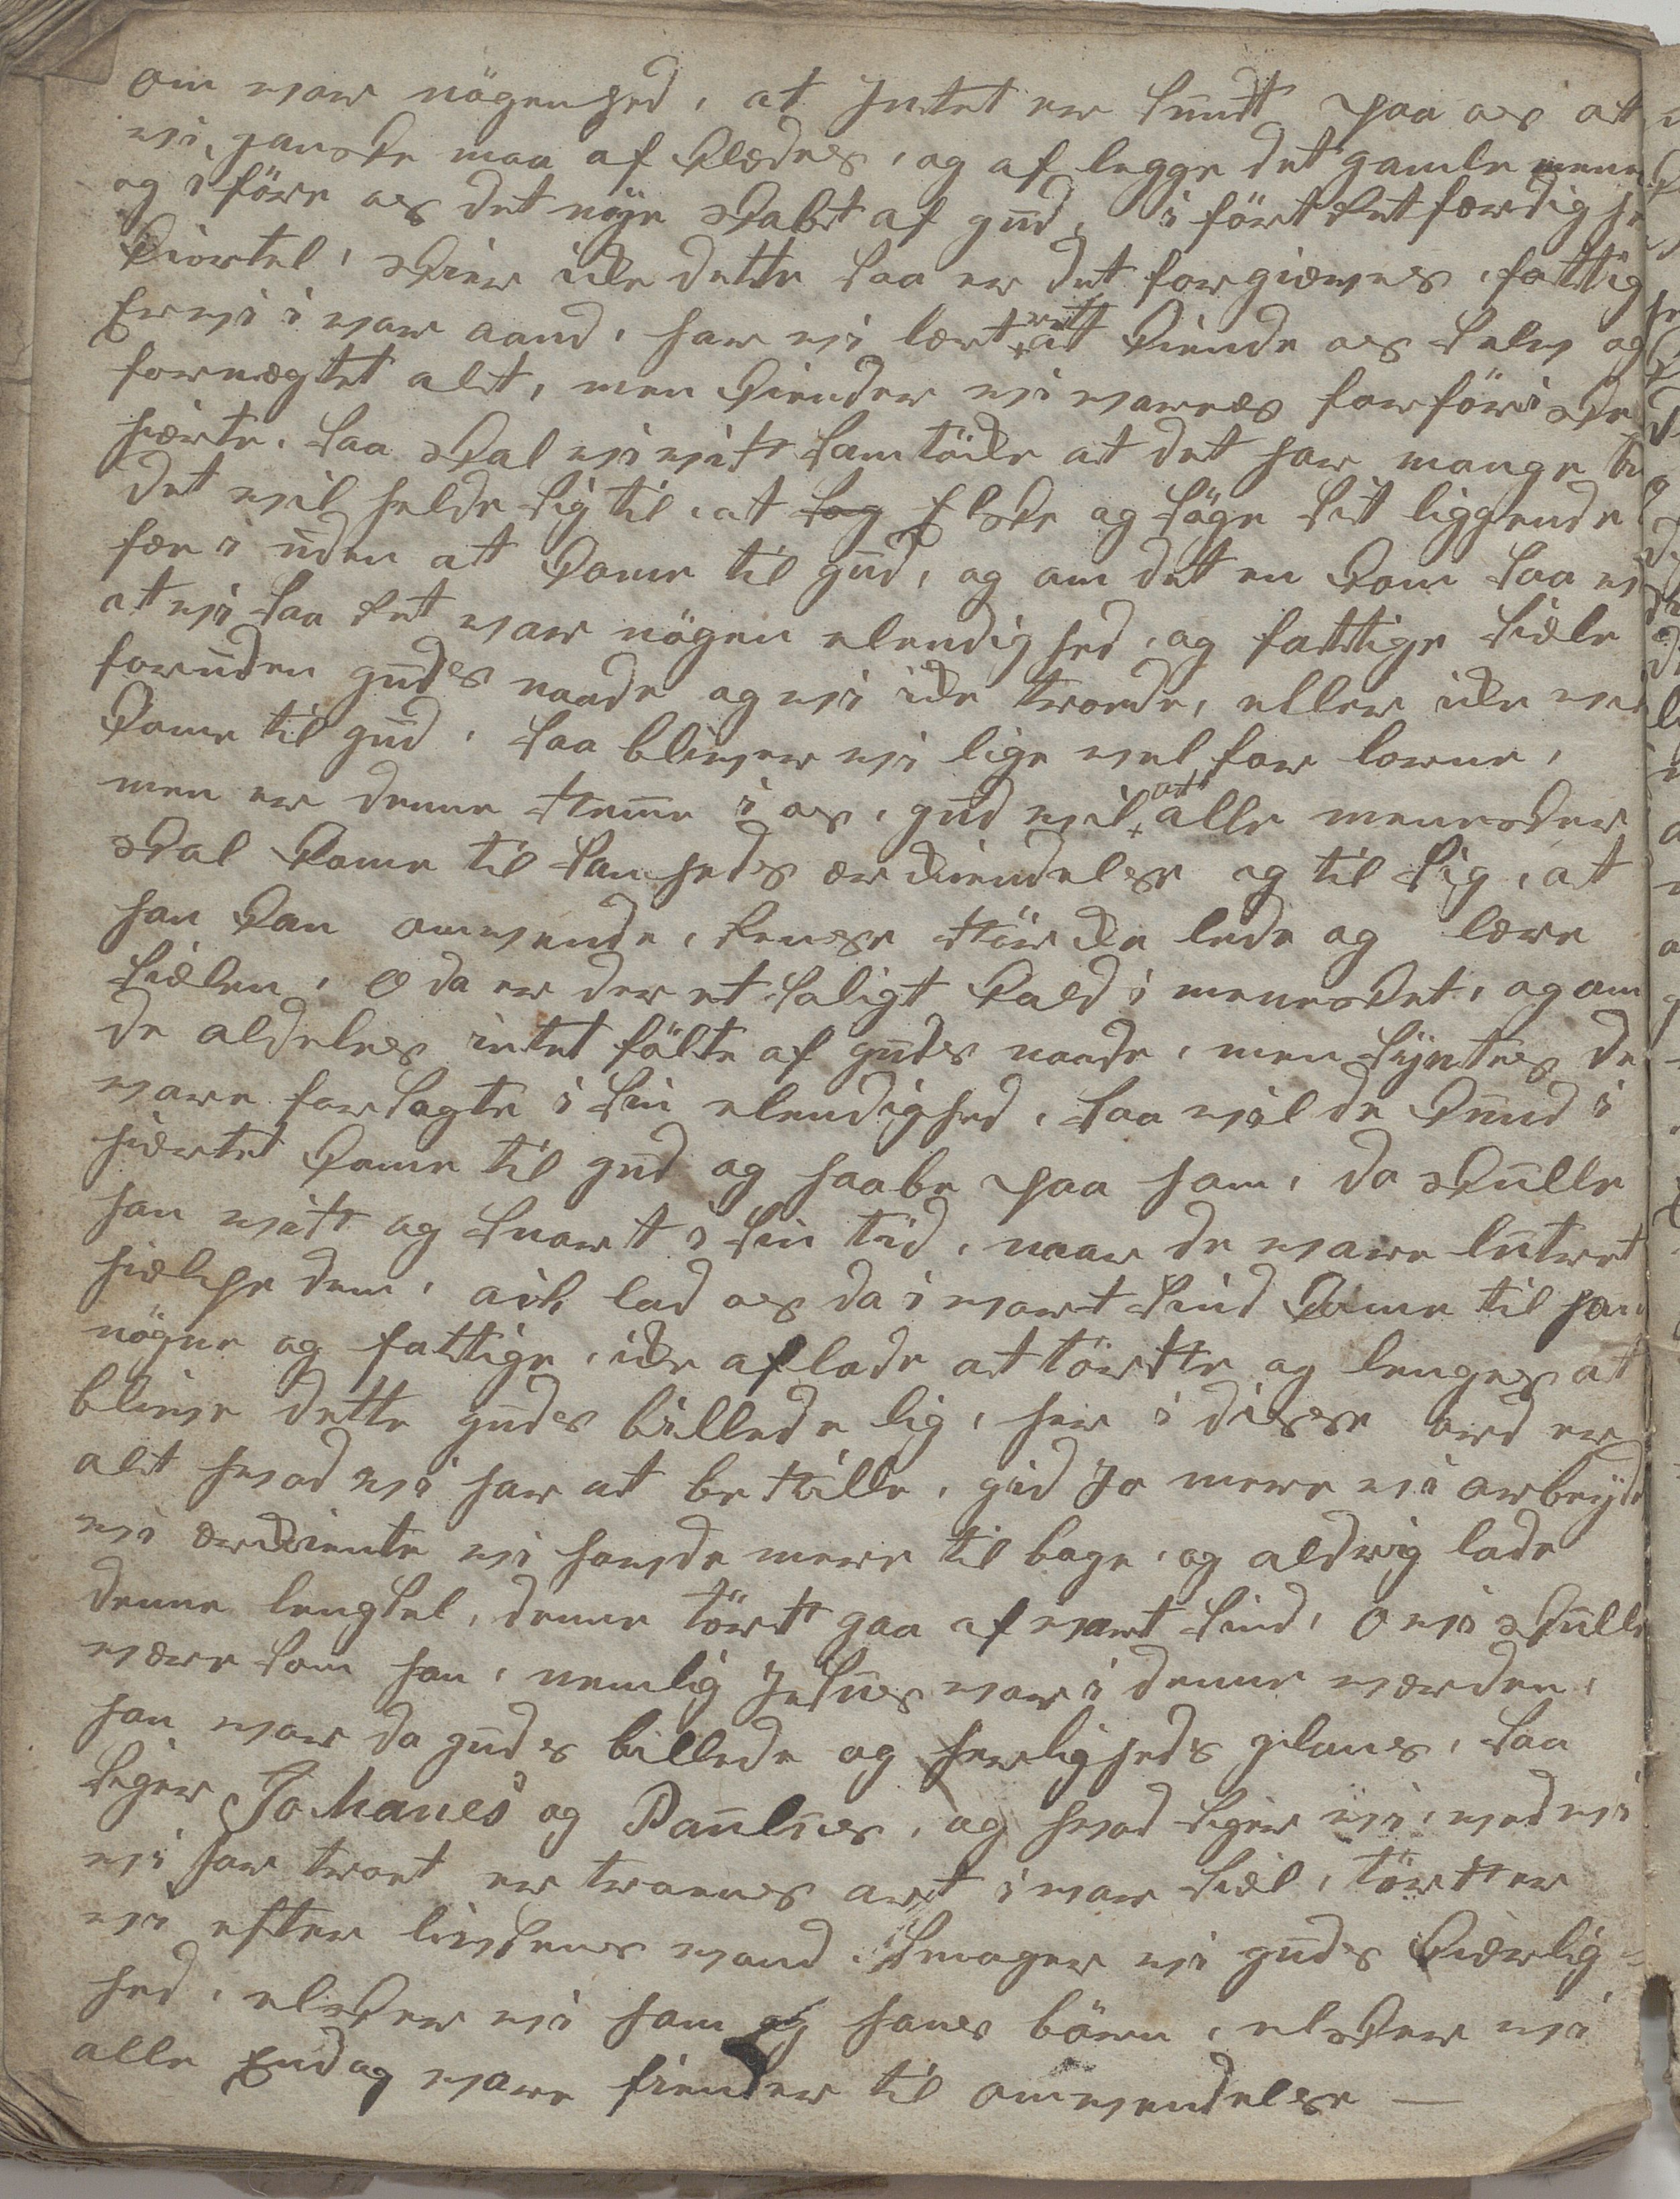 om vor nögenhed, at Intet er sundt paa os at
vi ganske maa af klædes, og af legge det gamle mene
og i före os det nÿe skabt af gud, i fört Retfærdighe
kiortel, skier icke dette saa er det forgieves, fattig
Er vi i vor aand, har vi lært ret at kiende os selv og
fornegtet alt, men kiender vi vores forföriske
hierte, saa skal vi vist samtöcke at det har mange
det vil helde sig til, at søg Elske og söge sit liggende
fæ i uden at kome til gud, og om det en kom saa vi
at vi saa Ret vor nögen elendighed, og fattige siæle
foruden guds naade og vi icke troede, eller icke vil
kome til gud, saa bliver vi lige vel for lorne,
men er denne steme i os, gud vil at alle menesker
skal kome til sanheds ærkiendelse og til sig, at
han kan omvende, Rense stürcke lede og lære
siælen, O da er der et saligt kald i menesket, og om
de aldeles intet fölte af guds naade, men sÿntes de
vare forsagte i sin elendighed, saa vil de kund i
hiertet kome til gud og haabe paa ham, da skulle
han vist og snart i sin tid, naar de vare lutret
hielpe dem, ach lad os da i vort sind kome til ham
nögne og fattige, icke aflade at törste og lenges at
blive dette guds billede lig, her i disse ord er
alt hvad vi har at bestille, gid Jo mere vi arbeÿd
vi ærkiente vi havde mere til bage, og aldrig lade
denne lengsel, denne törst gaa af vort sind, O vi skulle
være som han, nemlig Jesus var i denne værden,
han var da guds billede og herligheds glans, saa
siger Johanes og Paulus, og hvad siger vi, ved vi
vi har troet er troens art i vor siæl, törster
vi efter livsens vand, smager vi guds kiærlig=
hed, elsker vi ham og hans börn, elsker vi
alle Endog vore fiender til omvendelse —